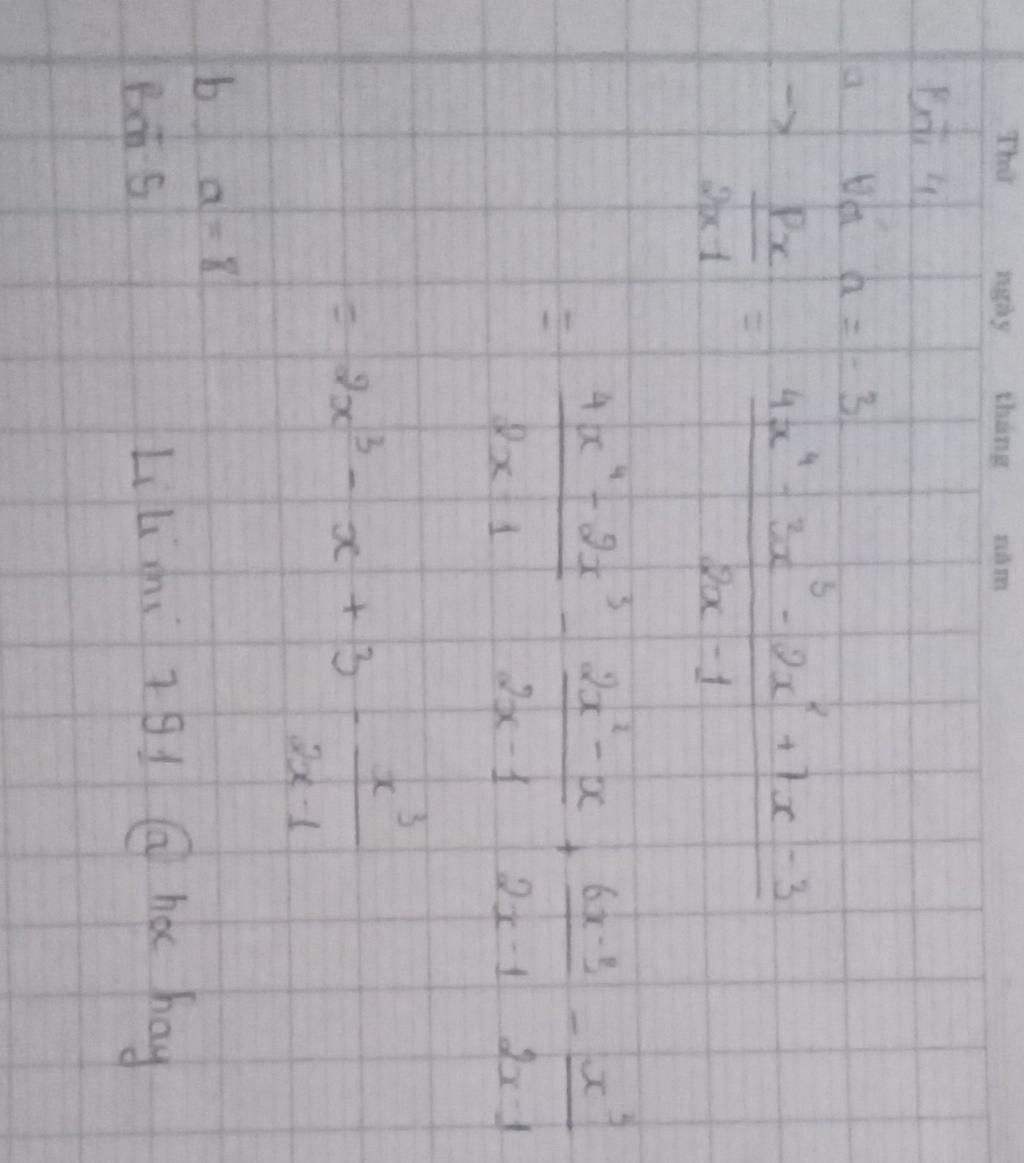 Thứ ngày tháng năm
Bài 4
a Vá a = - 3
→ Px / 2x 1 = 4x⁴ - 3x³ - 2x² + 7x - 3 / 2x - 1
= 4x⁴ - 2x³ / 2x - 1 - 2x² - x / 2x - 1 + 6x - 3 / 2x - 1 - x³ / 2x - 1
= 2x³ - x + 3 - x³ / 2x - 1
b a = 8
Bài 5
Li Li mi 791 @ hoc hay